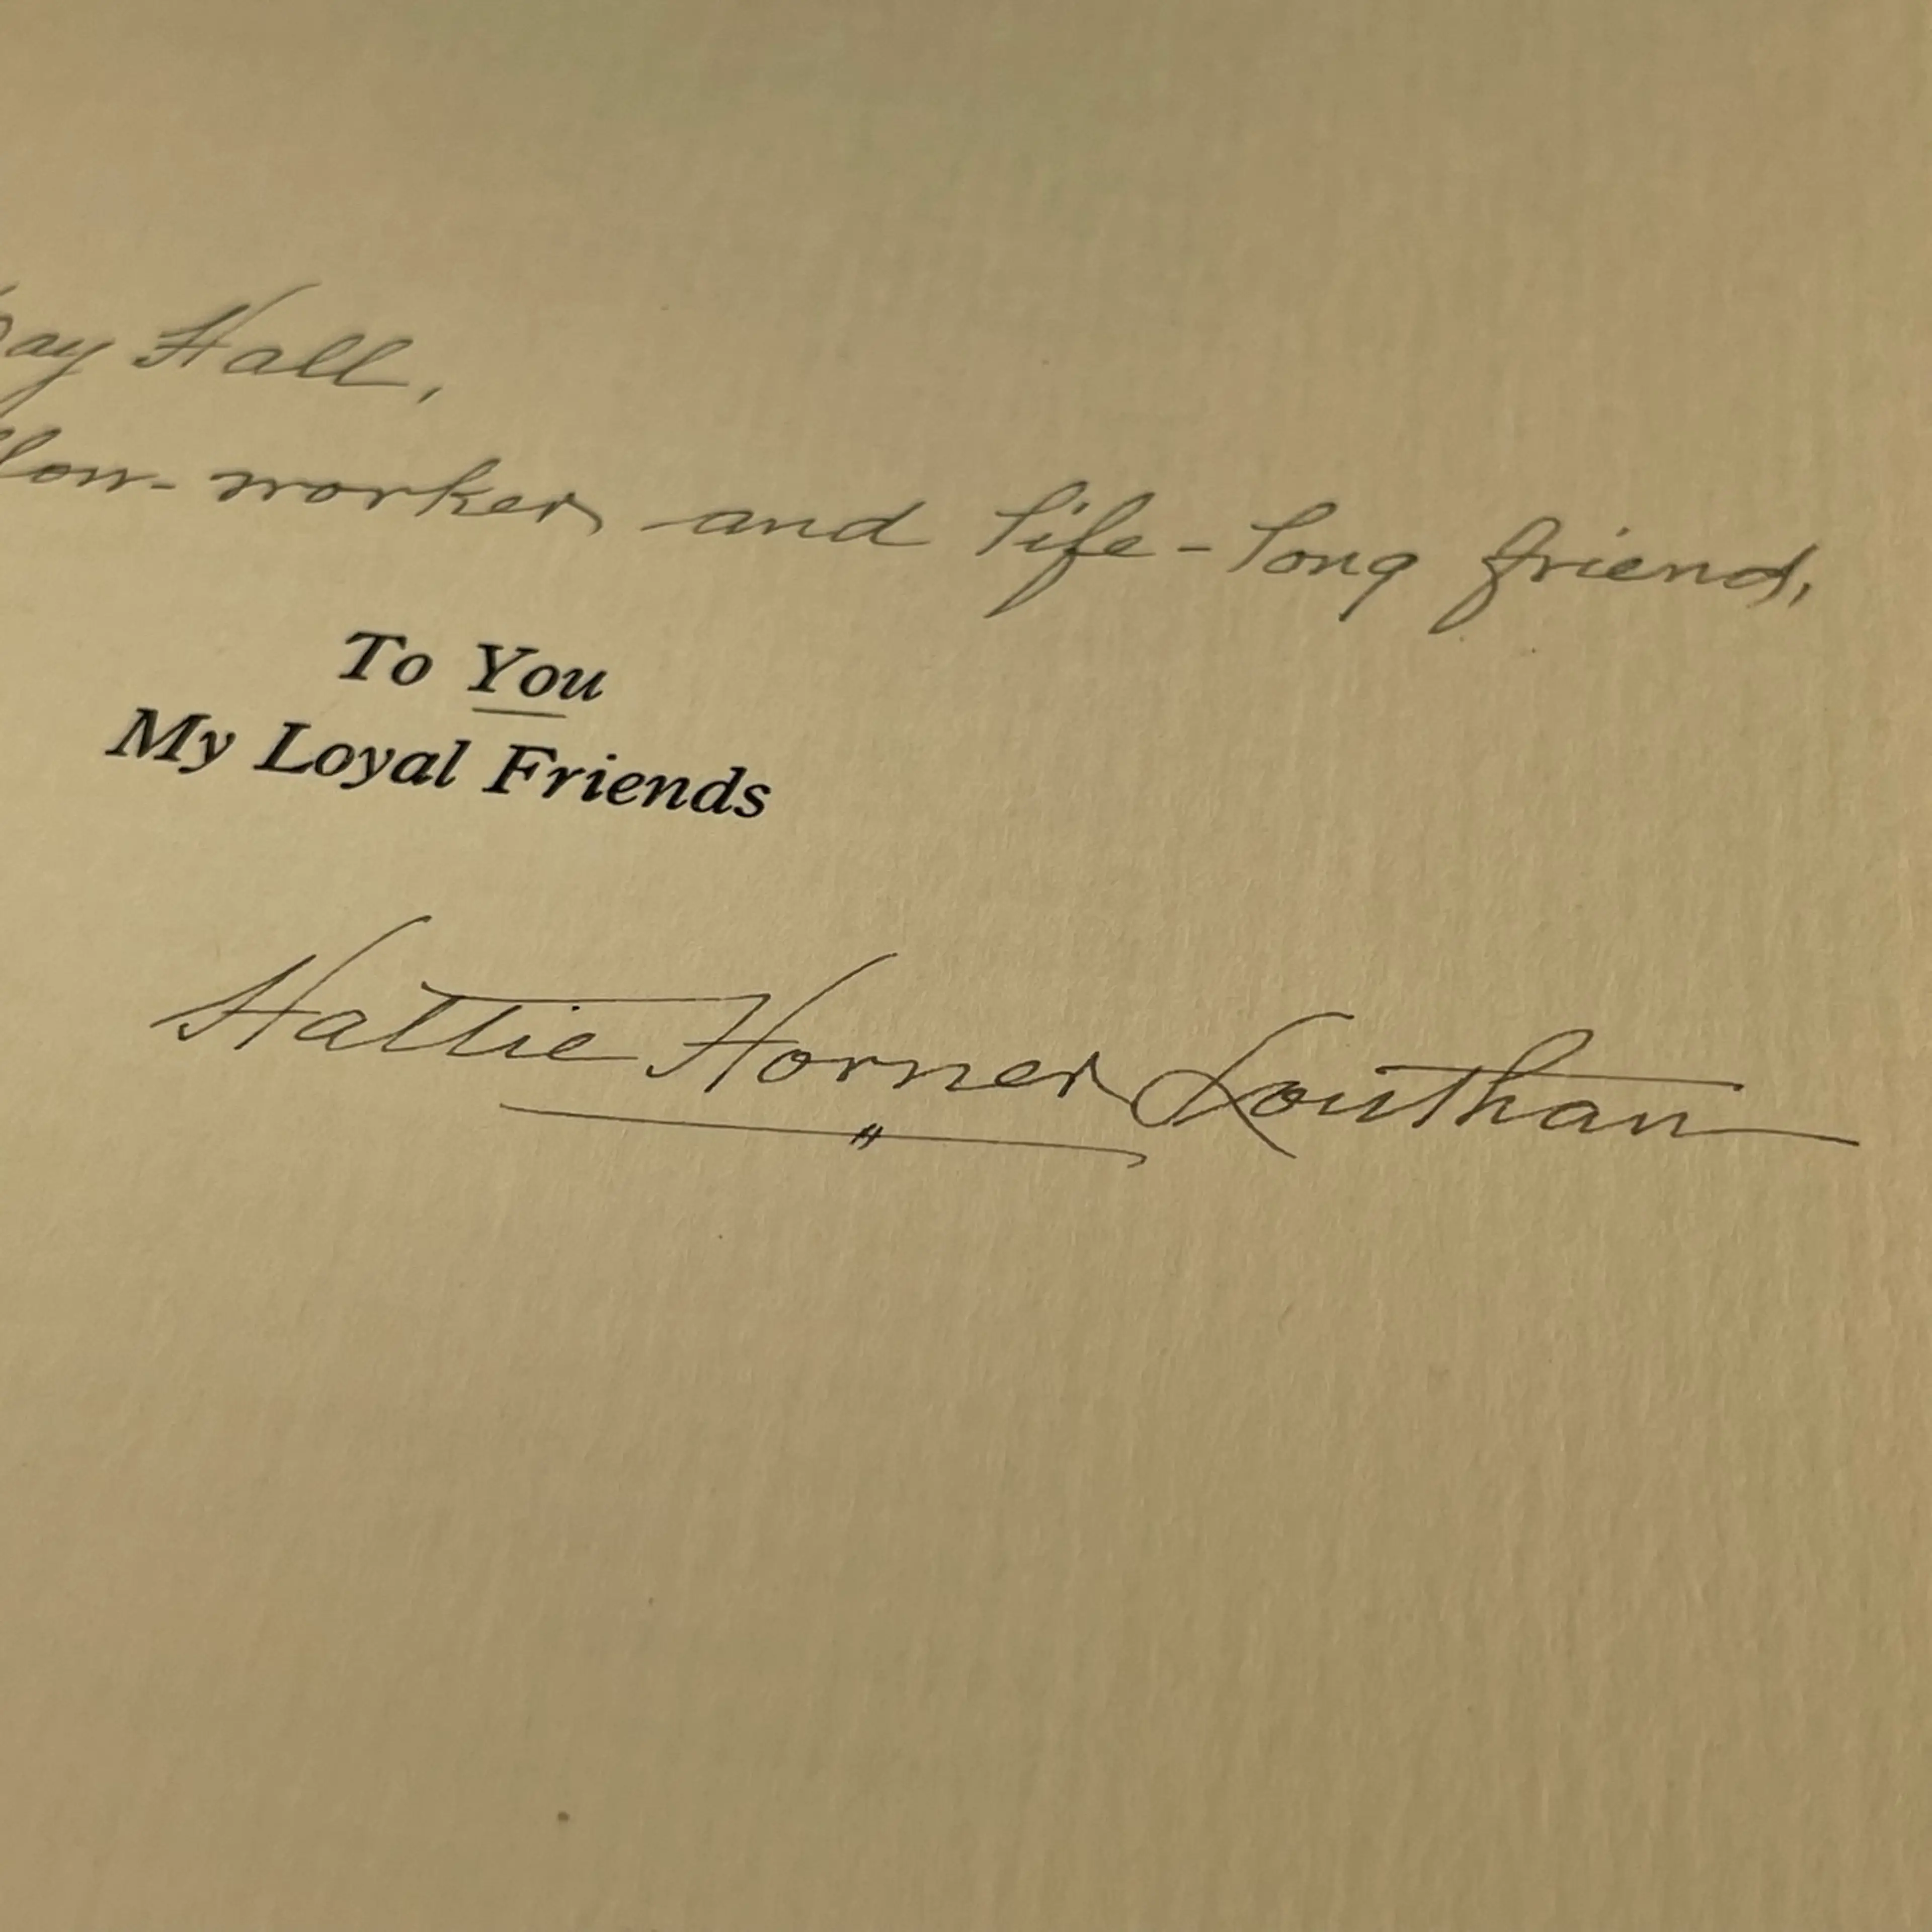 Hall,
worker and life-long friend,
To You
My Loyal Friends
Hattie Horner Louthan